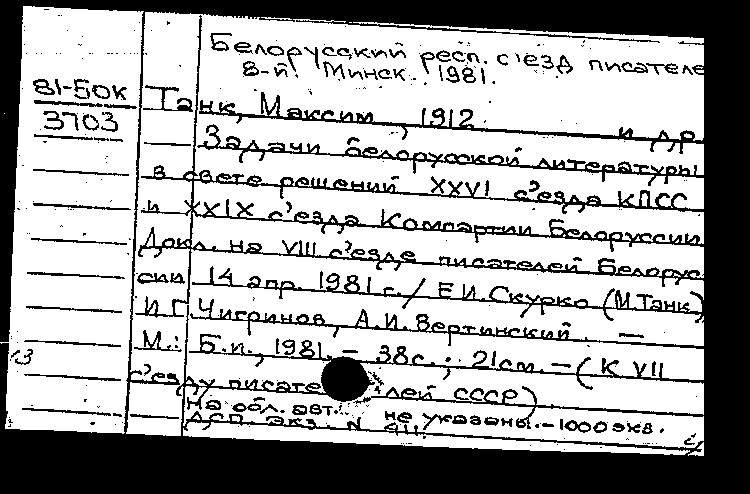 Белорусский респ. с'езд писателе
8-й. Минск. 1981.
81-БОК
3703
Танк, Максим, 1912 и др
Задачи белорусской литературы
в свете решений XXVI с'езда КПСС
и XXIX с'езда Компартии Белоруссии
Докл. на VIII с'езде писателей Белорус
сии 14 апр. 1981 г. / Е.И.Скурко (М.Танк)
И.Г. Чигринов, А.И. Вертинский. —
М.: Б.и., 1981. – 38с.; 21см. – (К VII
с'езду писателей СССР)
На обл. авт. не указаны. – 1000 экз.
ДСП. Экз. N 411.